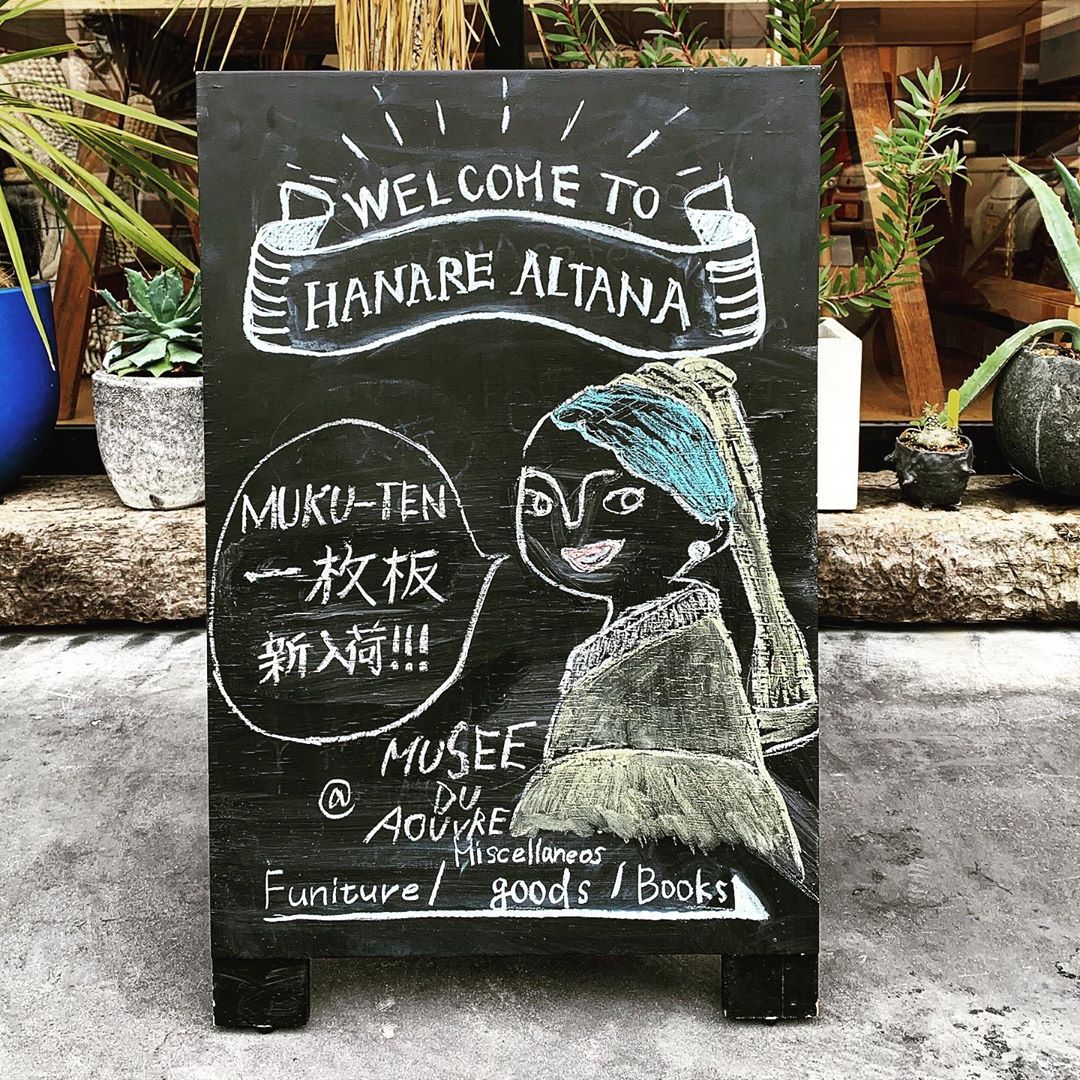 WELCOME TO
HANARE ALTANA
MUKU-TEN
一枚板
新入荷!!!
MUSEE
@ DU
AOUVRE
Miscellaneos
Funiture/ goods / Books